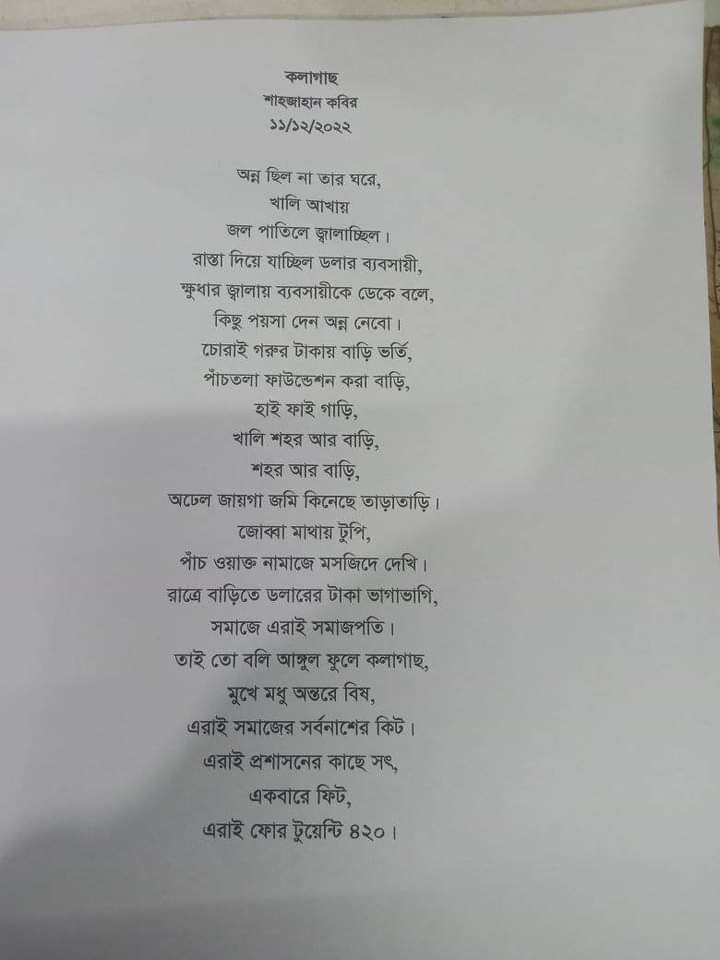 কলাগাছ
শাহজাহান কবির
১১/১২/২০২২
অন্ন ছিল না তার ঘরে,
খালি আখায়
জল পাতিলে জ্বালাচ্ছিল।
রাস্তা দিয়ে যাচ্ছিল ডলার ব্যবসায়ী,
ক্ষুধার জ্বালায় ব্যবসায়ীকে ডেকে বলে,
কিছু পয়সা দেন অন্ন নেবো।
চোরাই গরুর টাকায় বাড়ি ভর্তি,
পাঁচতলা ফাউন্ডেশন করা বাড়ি,
হাই ফাই গাড়ি,
খালি শহর আর বাড়ি,
শহর আর বাড়ি,
অঢেল জায়গা জমি কিনেছে তাড়াতাড়ি।
জোব্বা মাথায় টুপি,
পাঁচ ওয়াক্ত নামাজে মসজিদে দেখি।
রাত্রে বাড়িতে ডলারের টাকা ভাগাভাগি,
সমাজে এরাই সমাজপতি।
তাই তো বলি আঙ্গুল ফুলে কলাগাছ,
মুখে মধু অন্তরে বিষ,
এরাই সমাজের সর্বনাশের কিট।
এরাই প্রশাসনের কাছে সৎ,
একবারে ফিট,
এরাই ফোর টুয়েন্টি ৪২০।